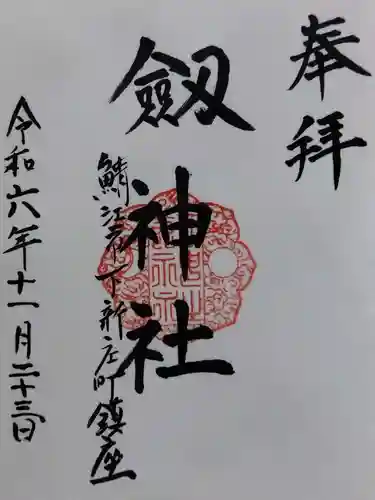 奉拝
劔神社
鯖江市下新庄町鎮座
令和六年十一月二十三日